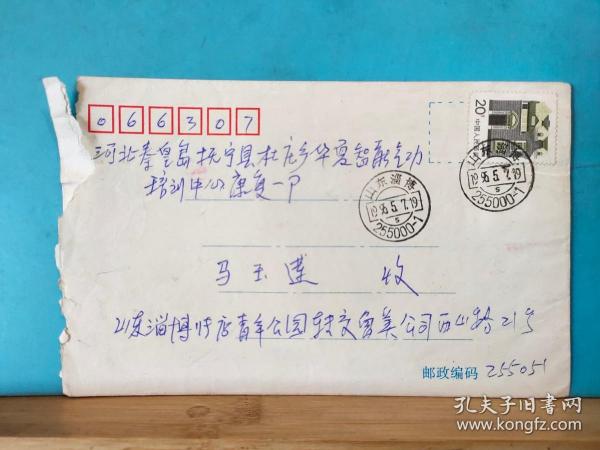 066307
河北秦皇岛抚宁县杜庄乡华夏智能气功
培训中心康复一户
马玉莲 收
山东淄博张店青年公园转交鲁美公司西山 21号
邮政编码 255051
20分 中国人民邮政
山东淄博
1996.5.7.19
s
255000-1
山东淄博
1996.5.7.19
s
255000-1
孔夫子旧书网
www.kongfz.com